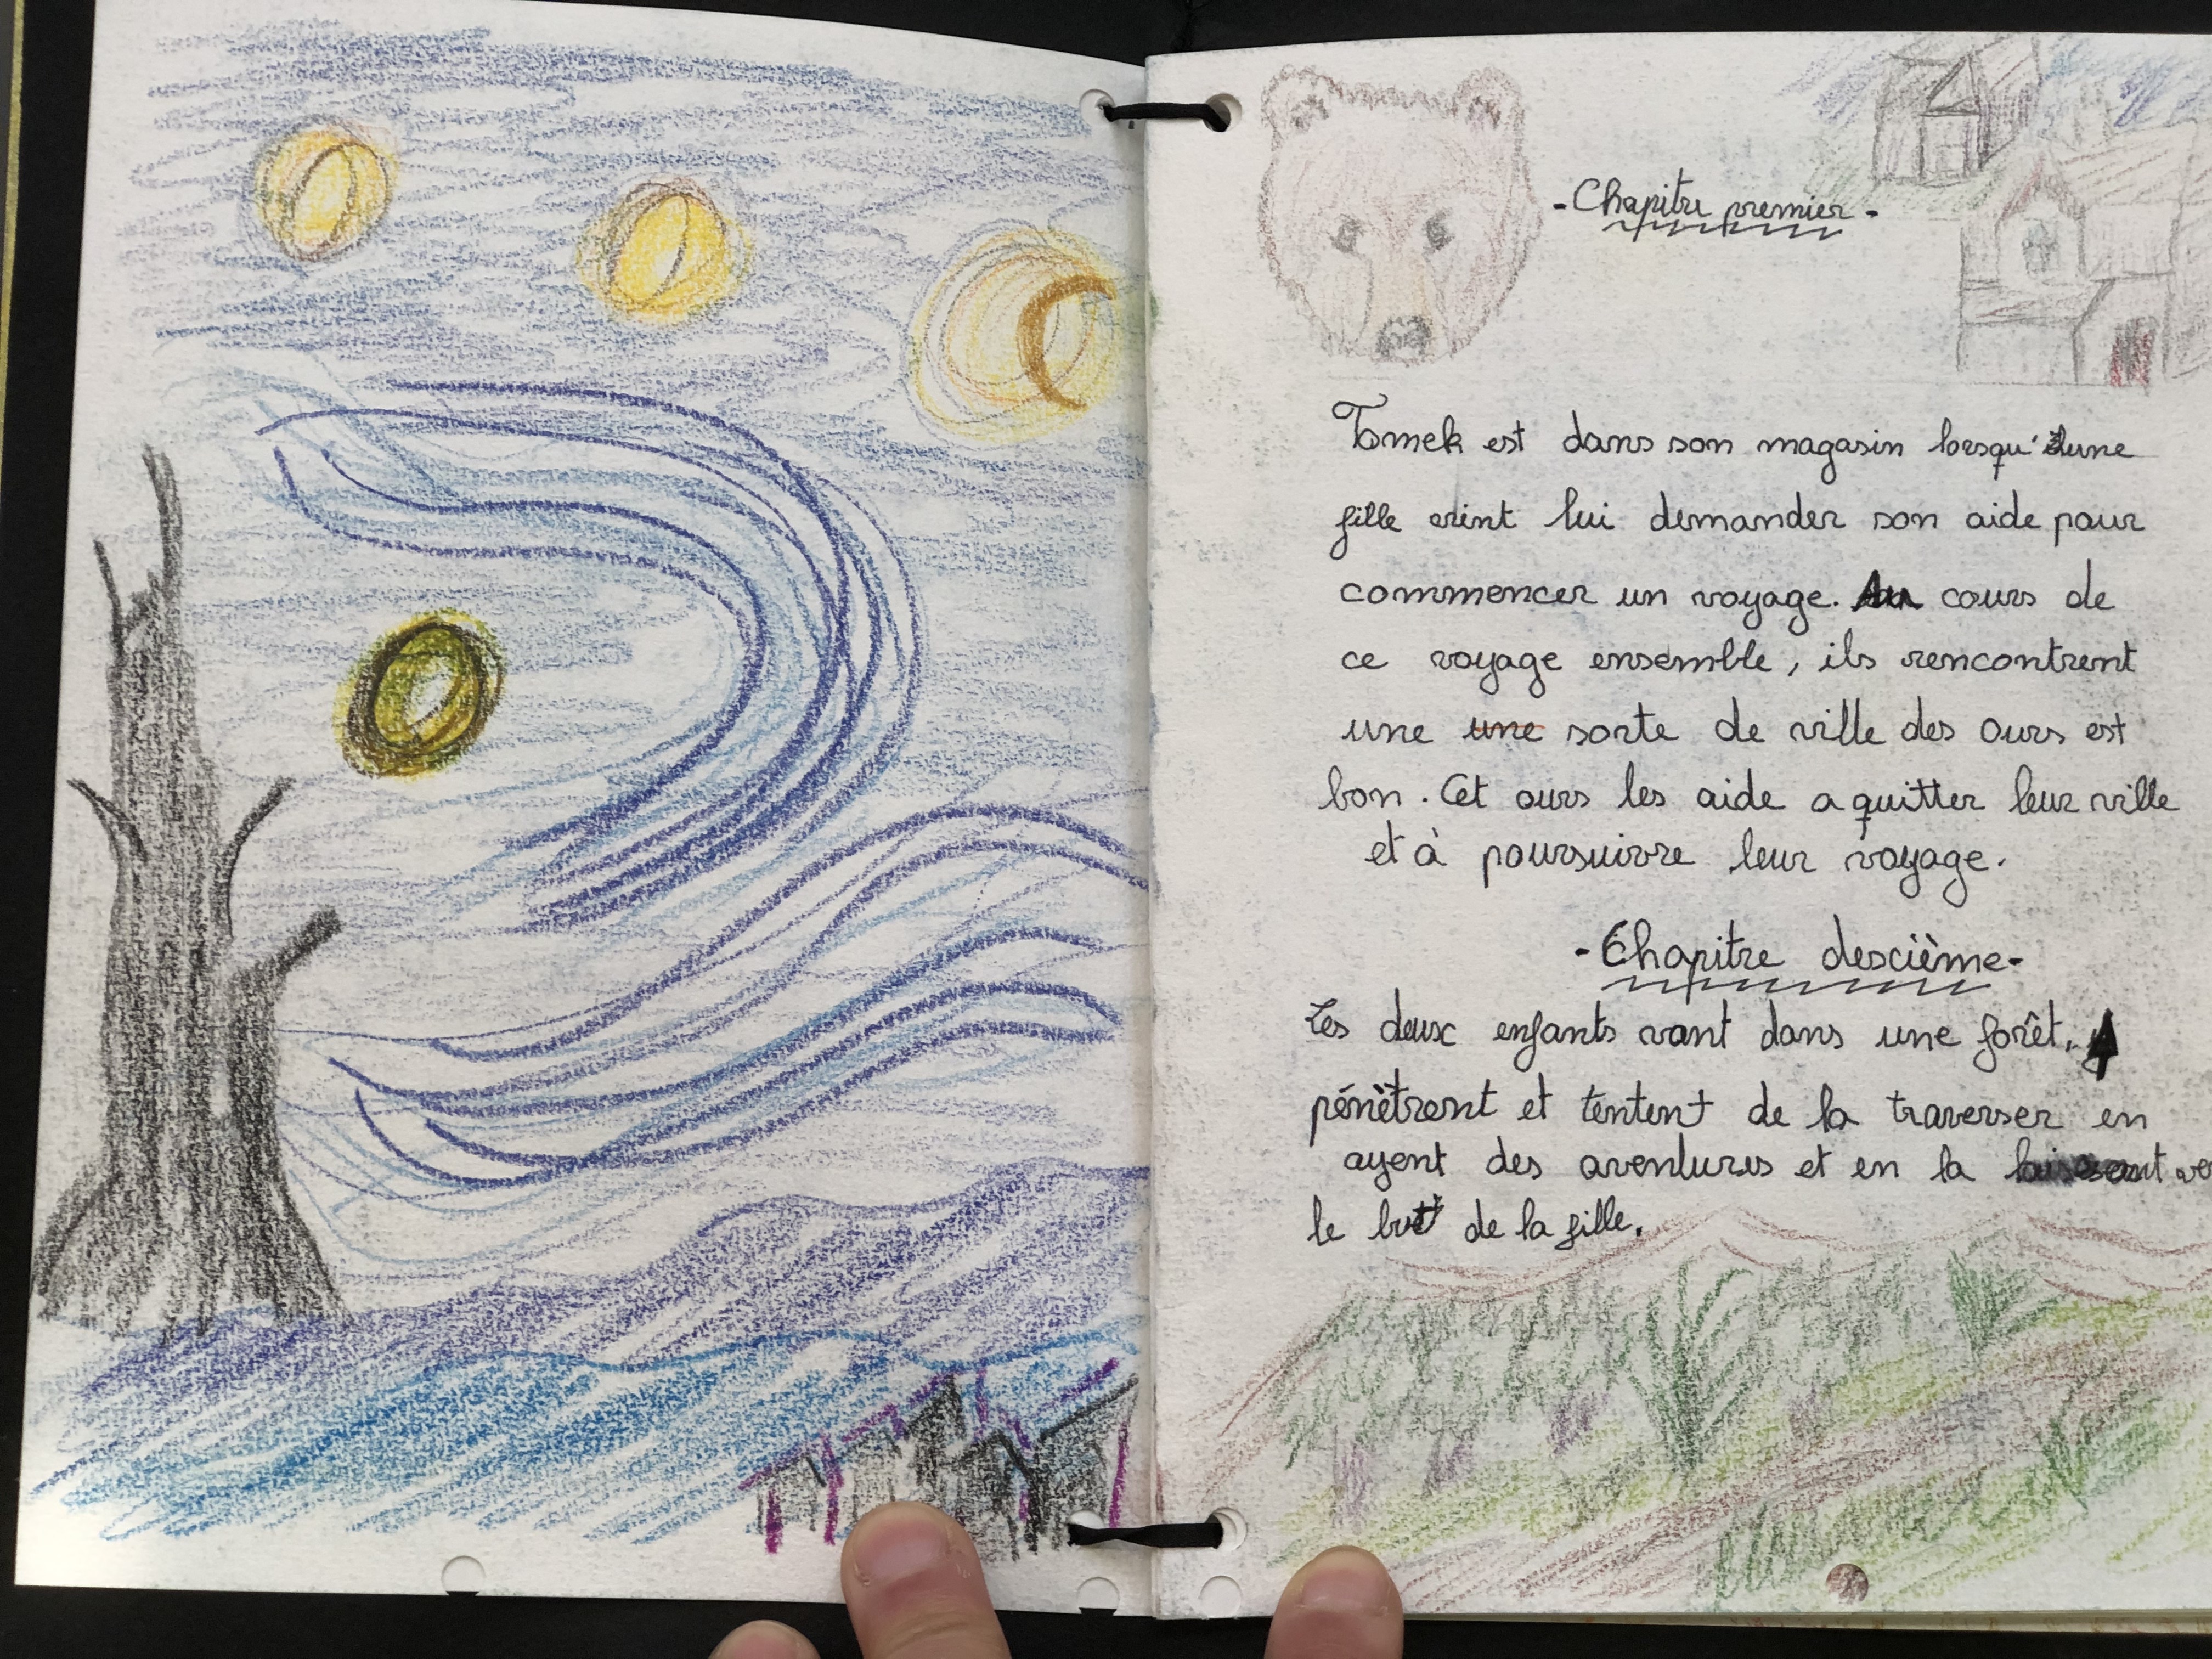 -Chapitre premier-
Tomek est dans son magasin lorsqu'une
fille vint lui demander son aide pour
commencer un voyage. Au cours de
ce voyage ensemble, ils rencontrent
une une sorte de ville des ours est
bon. Cet ours les aide a quitter leur ville
et à poursuivre leur voyage.
-Chapitre descième-
Les deux enfants vont dans une forêt,
pénètrent et tentent de la traverser en
ayent des aventures et en la
le but de la fille.